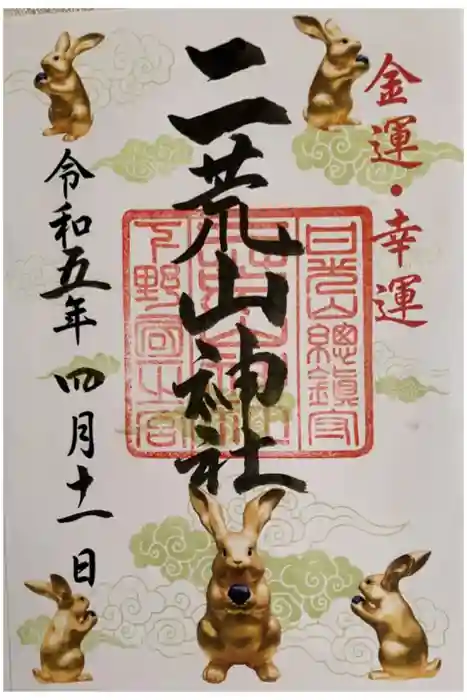 金運・幸運
二荒山神社
日光山總鎮守
下野國一之宮
令和五年 四月十一日